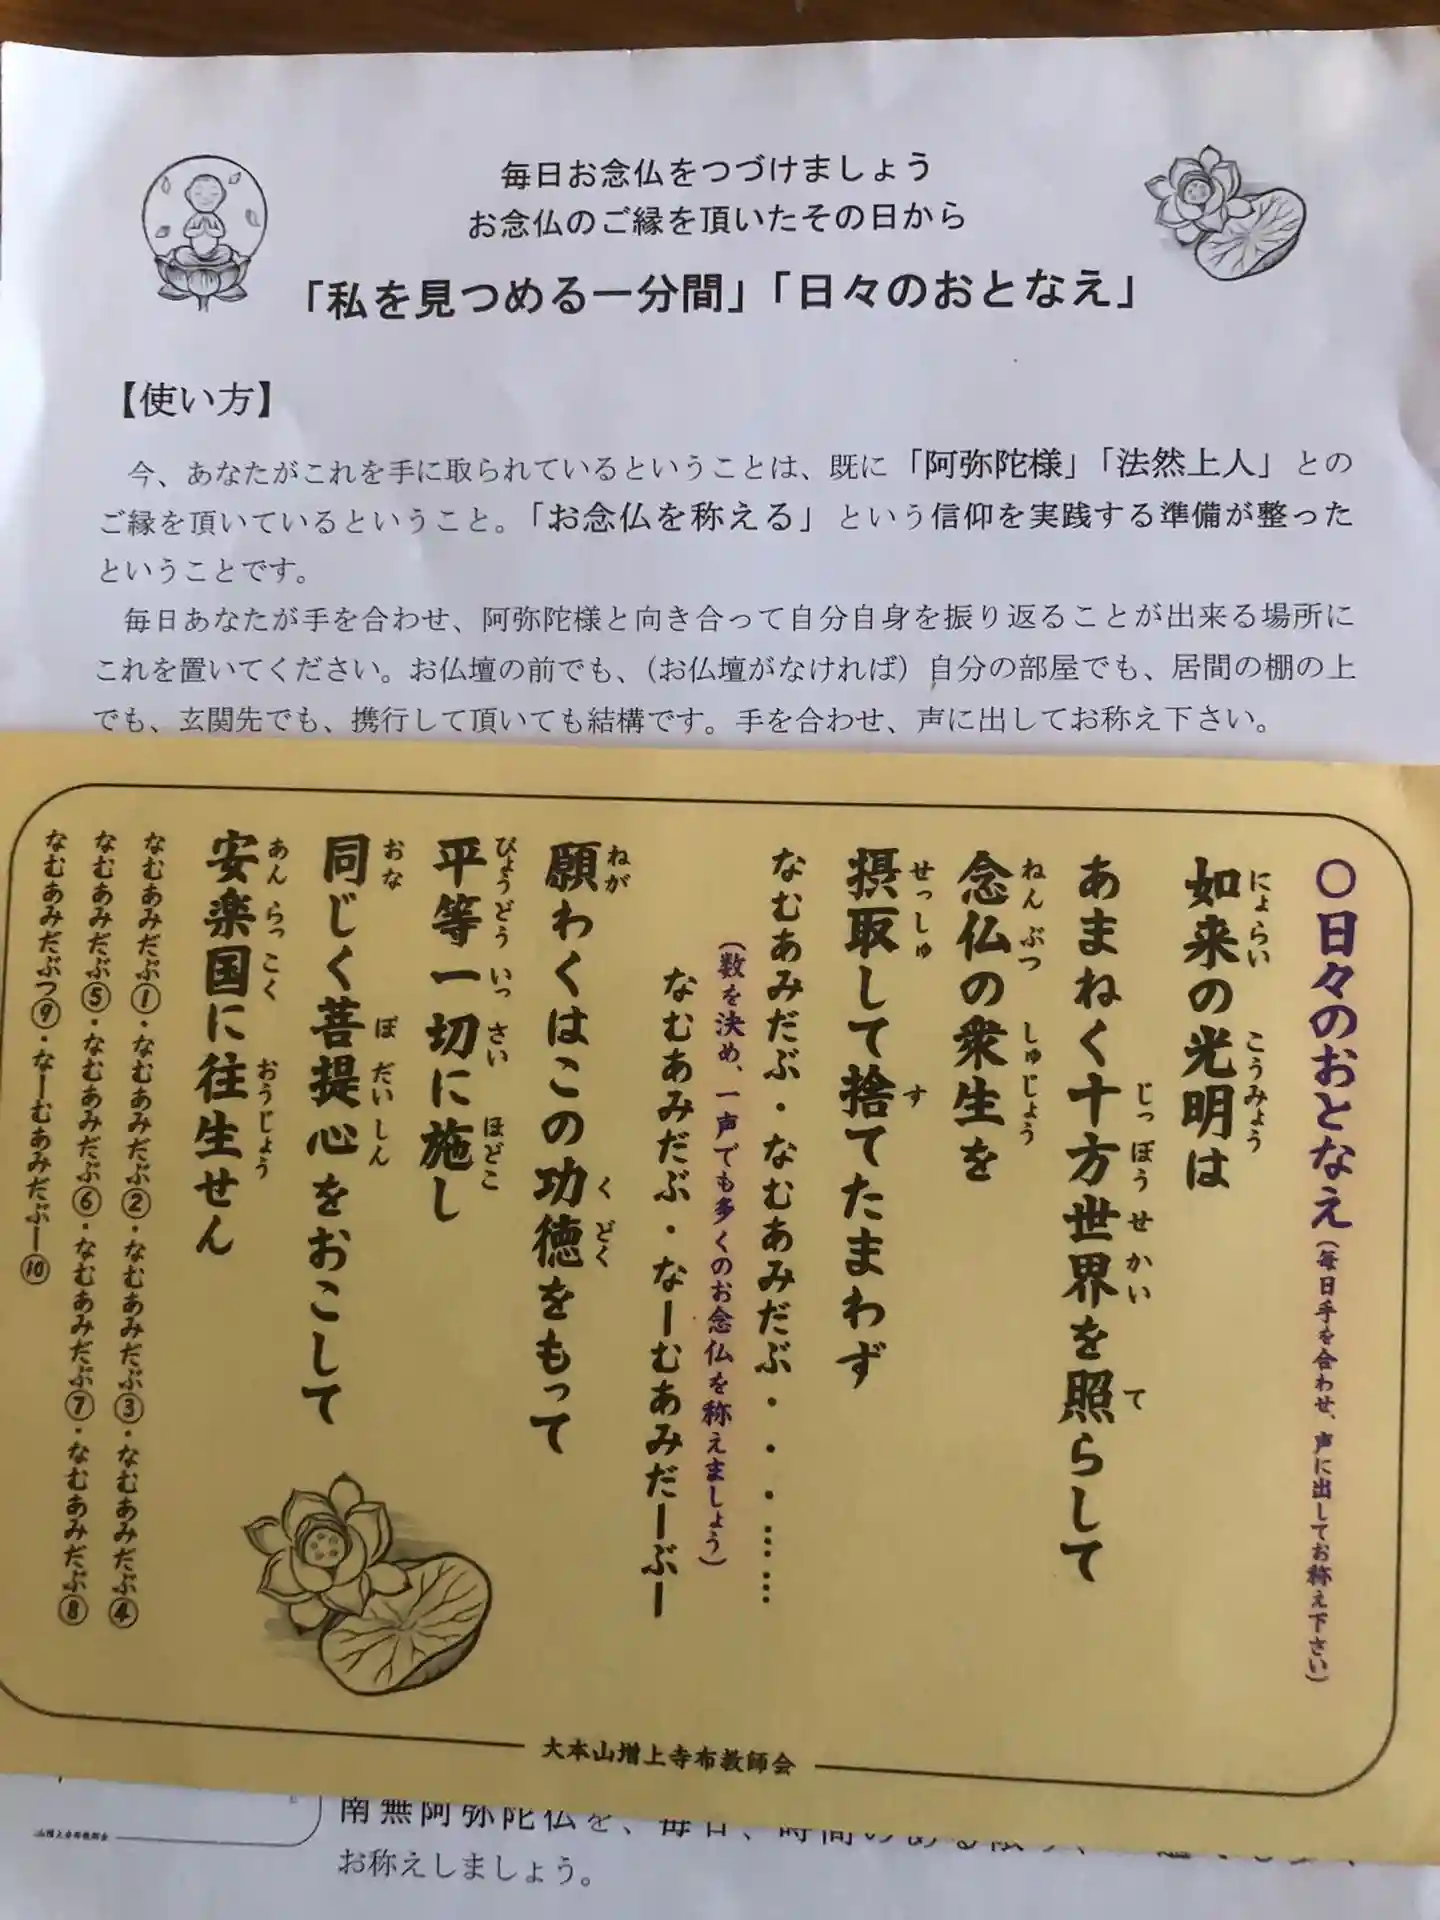 毎日お念仏をつづけましょう
お念仏のご縁を頂いたその日から
「私を見つめる一分間」「日々のおとなえ」
【使い方】
今、あなたがこれを手に取られているということは、既に「阿弥陀様」「法然上人」との
ご縁を頂いているということ。「お念仏を称える」という信仰を実践する準備が整った
ということです。
毎日あなたが手を合わせ、阿弥陀様と向き合って自分自身を振り返ることが出来る場所に
これを置いてください。お仏壇の前でも、(お仏壇がなければ)自分の部屋でも、居間の棚の上
でも、玄関先でも、携行して頂いても結構です。手を合わせ、声に出してお称え下さい。
〇日々のおとなえ(毎日手を合わせ、声に出してお称え下さい)
如来の光明は
にょらい こうみょう
あまねく十方世界を照らして
じっぽうせかい て
念仏の衆生を
ねんぶつ しゅじょう
摂取して捨てたまわず
せっしゅ す
なむあみだぶ・なむあみだぶ・・・・……
(数を決め、一声でも多くのお念仏を称えましょう)
なむあみだぶ・なーむあみだーぶー
願わくはこの功徳をもって
ねが くどく
平等一切に施し
びょうどういっさい ほどこ
同じく菩提心をおこして
おな ぼだいしん
安楽国に往生せん
あんらっこく おうじょう
なむあみだぶ①・なむあみだぶ②・なむあみだぶ③・なむあみだぶ④
なむあみだぶ⑤・なむあみだぶ⑥・なむあみだぶ⑦・なむあみだぶ⑧
なむあみだぶつ⑨・なーむあみだぶー⑩
大本山増上寺布教師会
山増上寺布教師会
南無阿弥陀仏を、毎日、時間のある限り、
お称えしましょう。